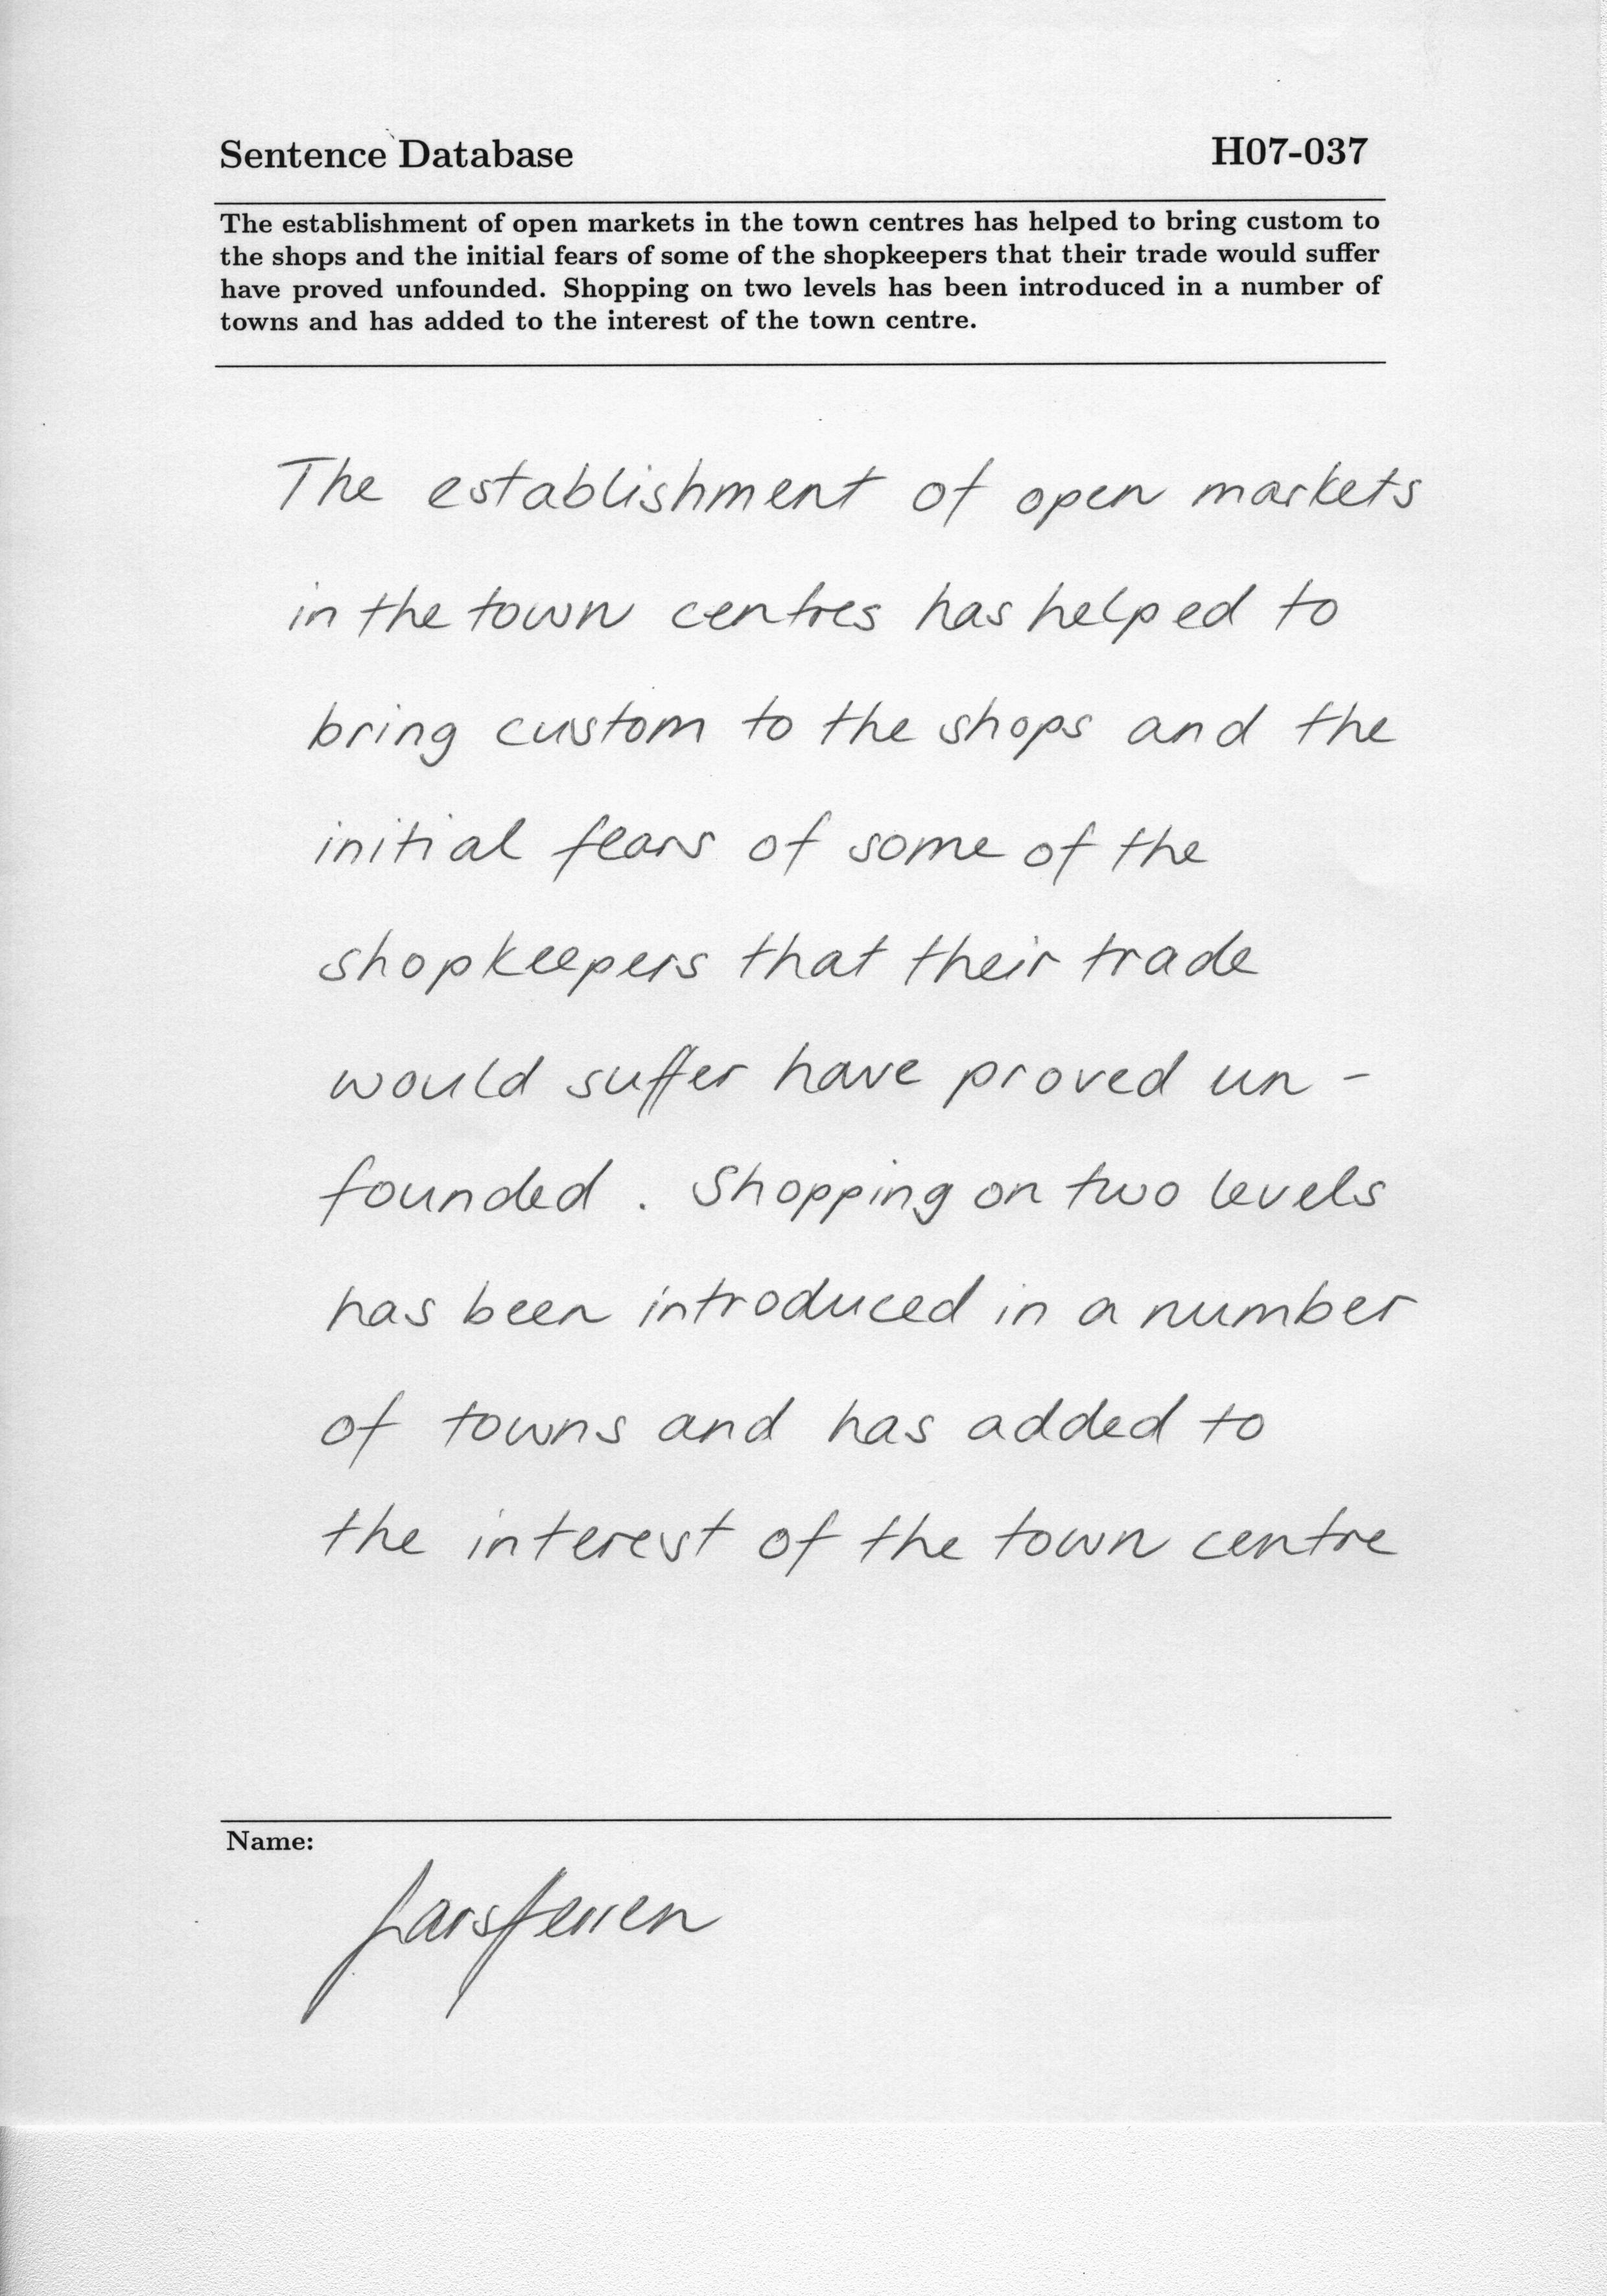 Sentence Database
H07-037
The establishment of open markets in the town centres has helped to bring custom to
the shops and the initial fears of some of the shopkeepers that their trade would suffer
have proved unfounded. Shopping on two levels has been introduced in a number of
towns and has added to the interest of the town centre.
The establishment of open markets
in the town centres has helped to
bring custom to the shops and the
initial fears of some of the
shopkeepers that their trade
would suffer have proved un-
founded. Shopping on two levels
has been introduced in a number
of towns and has added to
the interest of the town centre
Name: